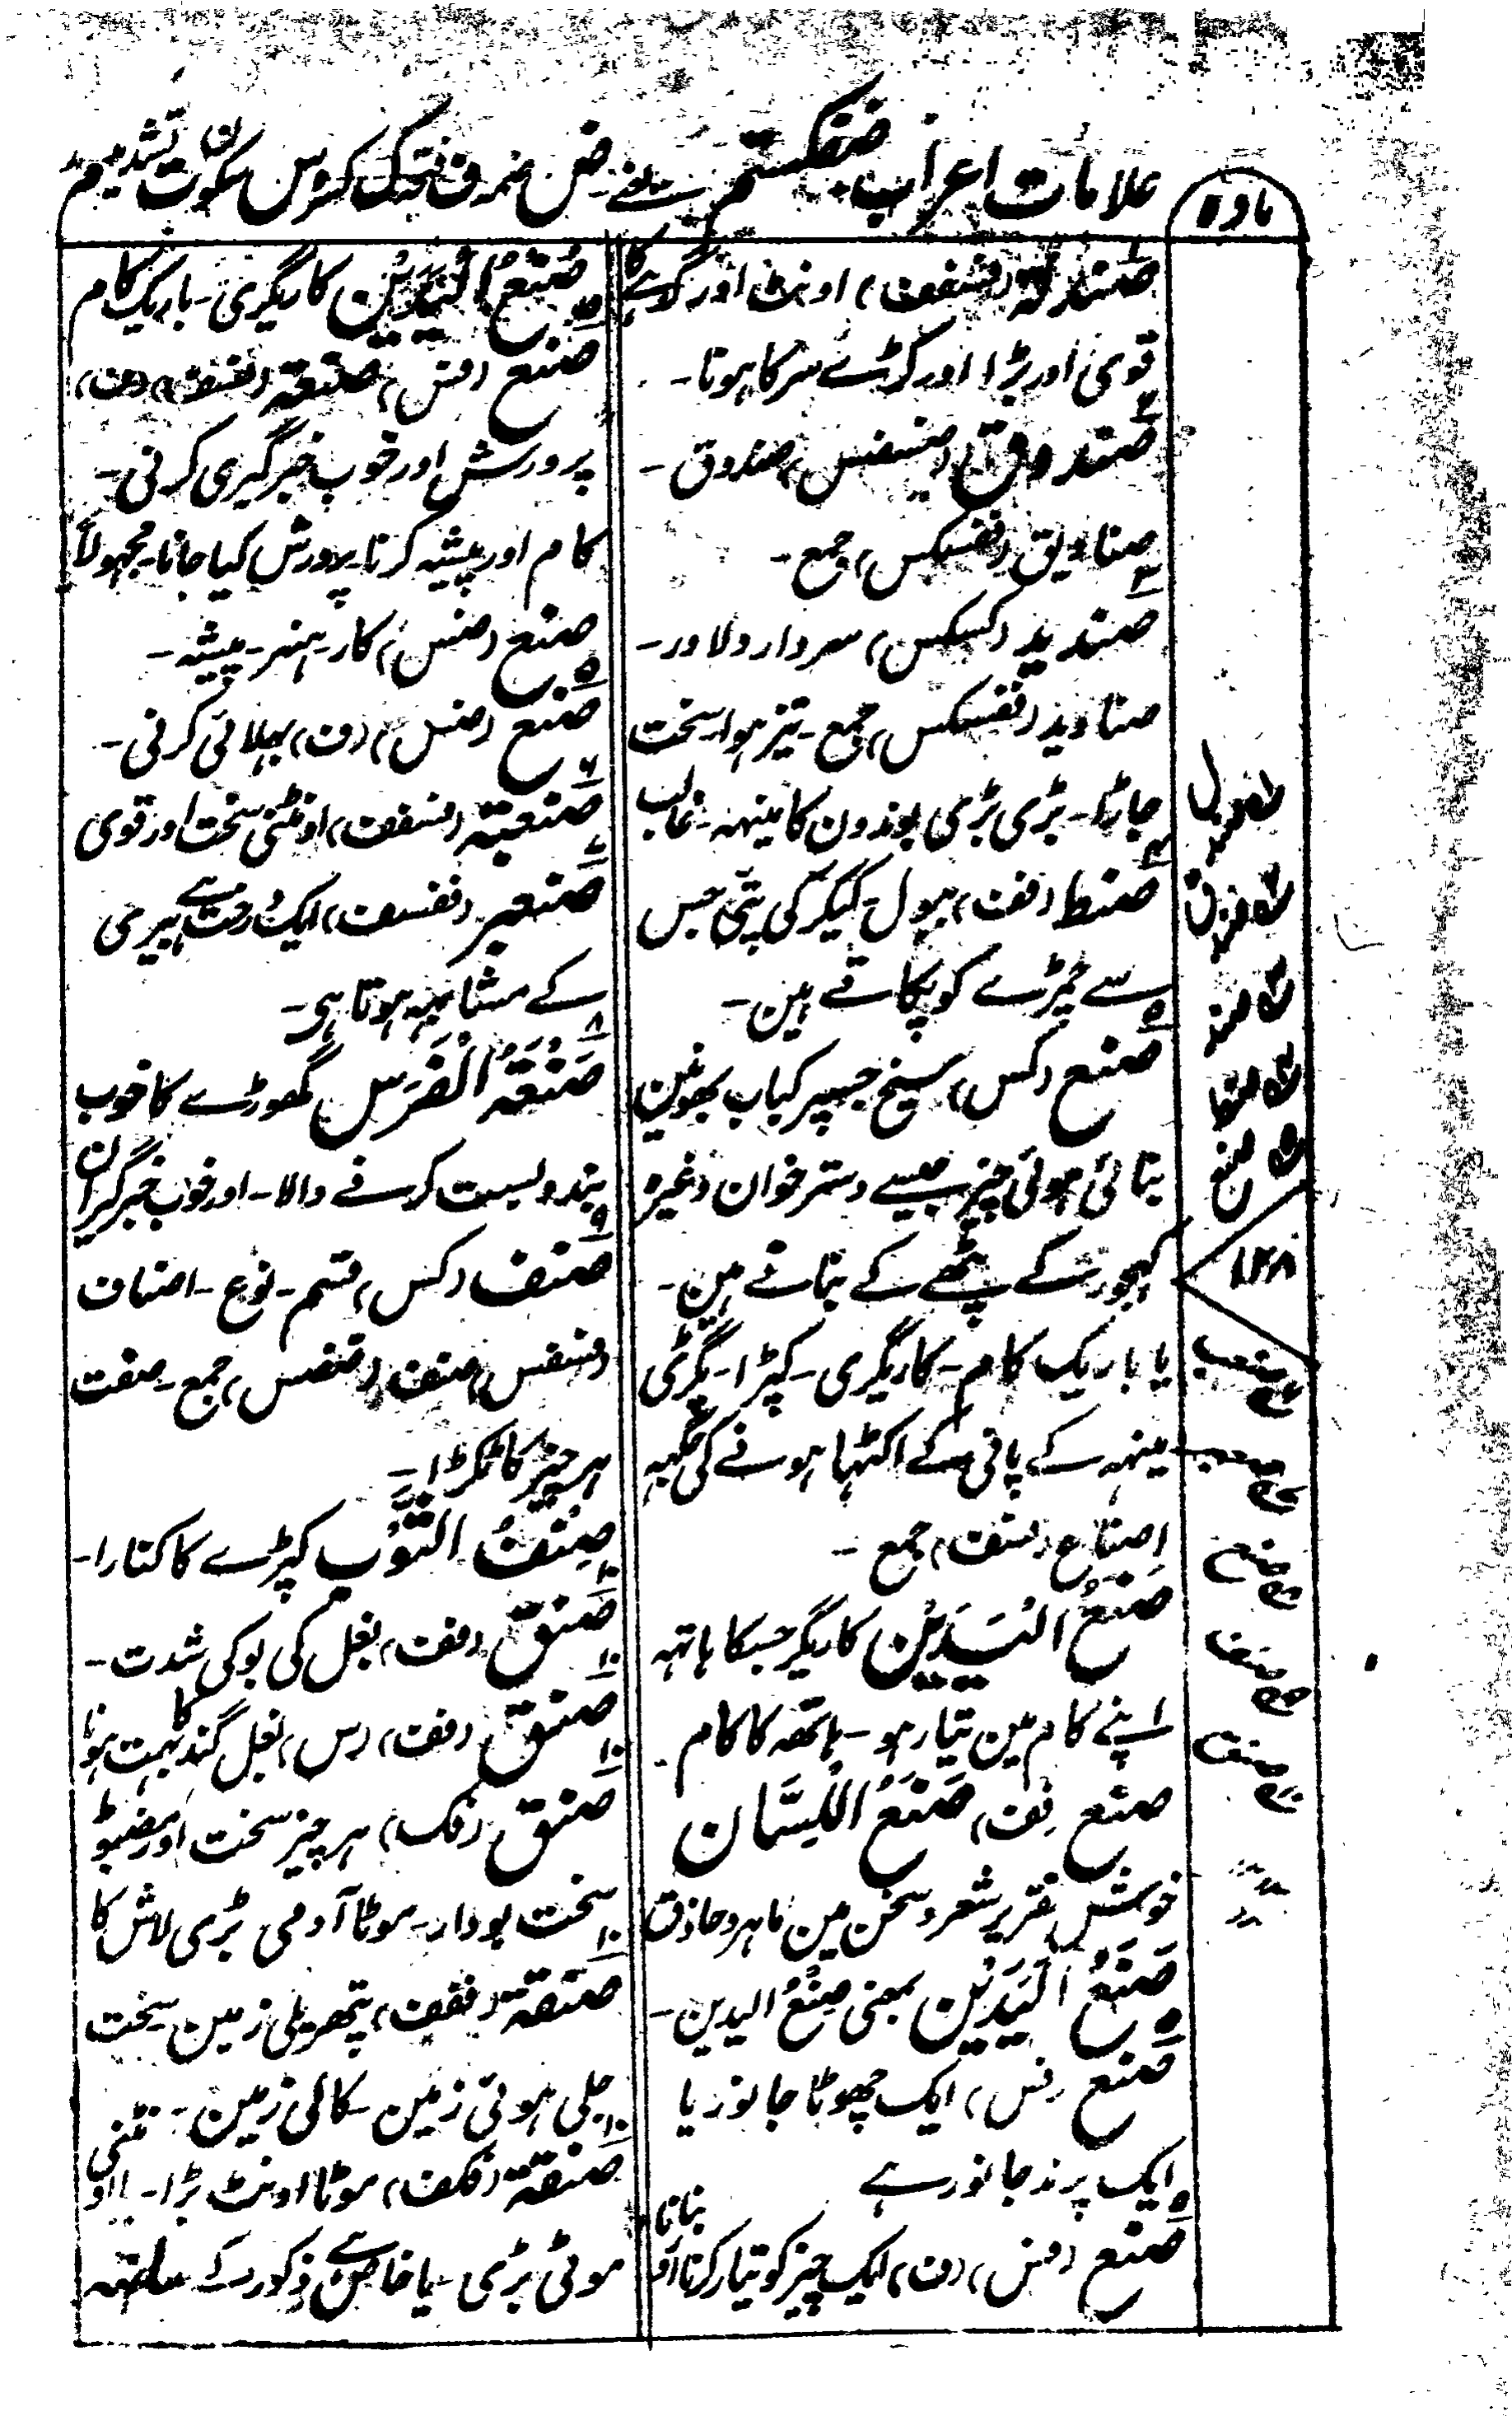 علامات اعراب ضفکستم یعنے ض ضمہ ف فتحہ ک کسرہ س سکون ت تشدید م مد
مادہ
صندلة (فسففت) اونٹ اور گدہے کا
قوی اور بڑا اور کڑے سر کا ہونا۔
صندوق (ضسضس) صندوق۔
صنادیق (ففسکس) جمع۔
صندید (کسکس) سردار دلاور۔
صنادید (ففسکس) جمع۔ تیز ہوا۔ سخت
جاڑا۔ بڑی بڑی بوندون کا مینہہ۔ غالب
صنط (فت) ببول کیکر کی پتّی جس
سے چمڑے کو پکاتے ہین۔
صنع (کس) سیخ جسپر کباب بھونین
بنائی ہوئی چیز جیسے دسترخوان وغیرہ
کہجور کے پٹھے کے بناتے ہین۔
یا باریک کام۔ کاریگری۔ کپڑا۔ پگڑی
مینہہ کے پانی کے اکٹہا ہونے کی جگہہ
اصناع (فسفت) جمع۔
صنع الیدین کاریگر جسکا ہاتہہ
اپنے کام مین تیار ہو۔ ہاتھہ کا کام۔
صنع (فت) صَنَعُ اللِّسَان
خوش تقریر شعر و سخن مین ماہر و حاذق
صَنَعُ الْیَدَیْن بمعنی صِنْعُ الیدین۔
صنع (فس) ایک چھوٹا جانور یا
ایک پرند جانور ہے
صنع (فس) (ف) ایک چیز کو تیار کرنا اور بنانا
صُنْعُ الْیَدَیْن کاریگری۔ باریک کام
صنع (فس) صنعة (فسفت) (ف)
پرورش اور خوب خبرگیری کرنی۔
کام اور پیشہ کرنا۔ پرورش کیا جانا۔ مجہولاً
صنع (ضس) کار۔ ہنر۔ پیشہ۔
صنع (ضس) (ف) بہلائی کرنی۔
صنعبة (فسففت) اونٹنی سخت اور قوی
صنعبر (ففسفت) ایک درخت ہے بیری
کے مشابہہ ہوتا ہی۔
صَنْعَةُ الْفَرَس گھوڑے کا خوب
بندوبست کرنے والا۔ اور خوب خبرگیران
صنف (کس) قسم۔ نوع۔ اصناف
(فسفس) صنف جمع۔ صفت
ہر چیز کا ٹکڑا۔
صِنْفُ الثَّوْب کپڑے کا کنارا۔
صنق (ففت) بغل کی بو کی شدت۔
صنق (ففت) (س) بغل گند کا بہت ہونا
صنق (فک) ہر چیز سخت اور مضبوط
سخت بودار۔ موٹا آدمی بڑی لاش کا
صنقة (فففت) پتھریلی زمین سخت
جلی ہوئی زمین۔ کالی زمین۔
صنقة (فکفت) موٹا اونٹ بڑا۔ یا اونٹنی
موٹی بڑی۔ یا خاص ہے ذکور کے ساتھہ
صندل
صندق
صند
صنط
صنع
۱۲۸
صنعب
صنعبر
صنع
صنف
صنق